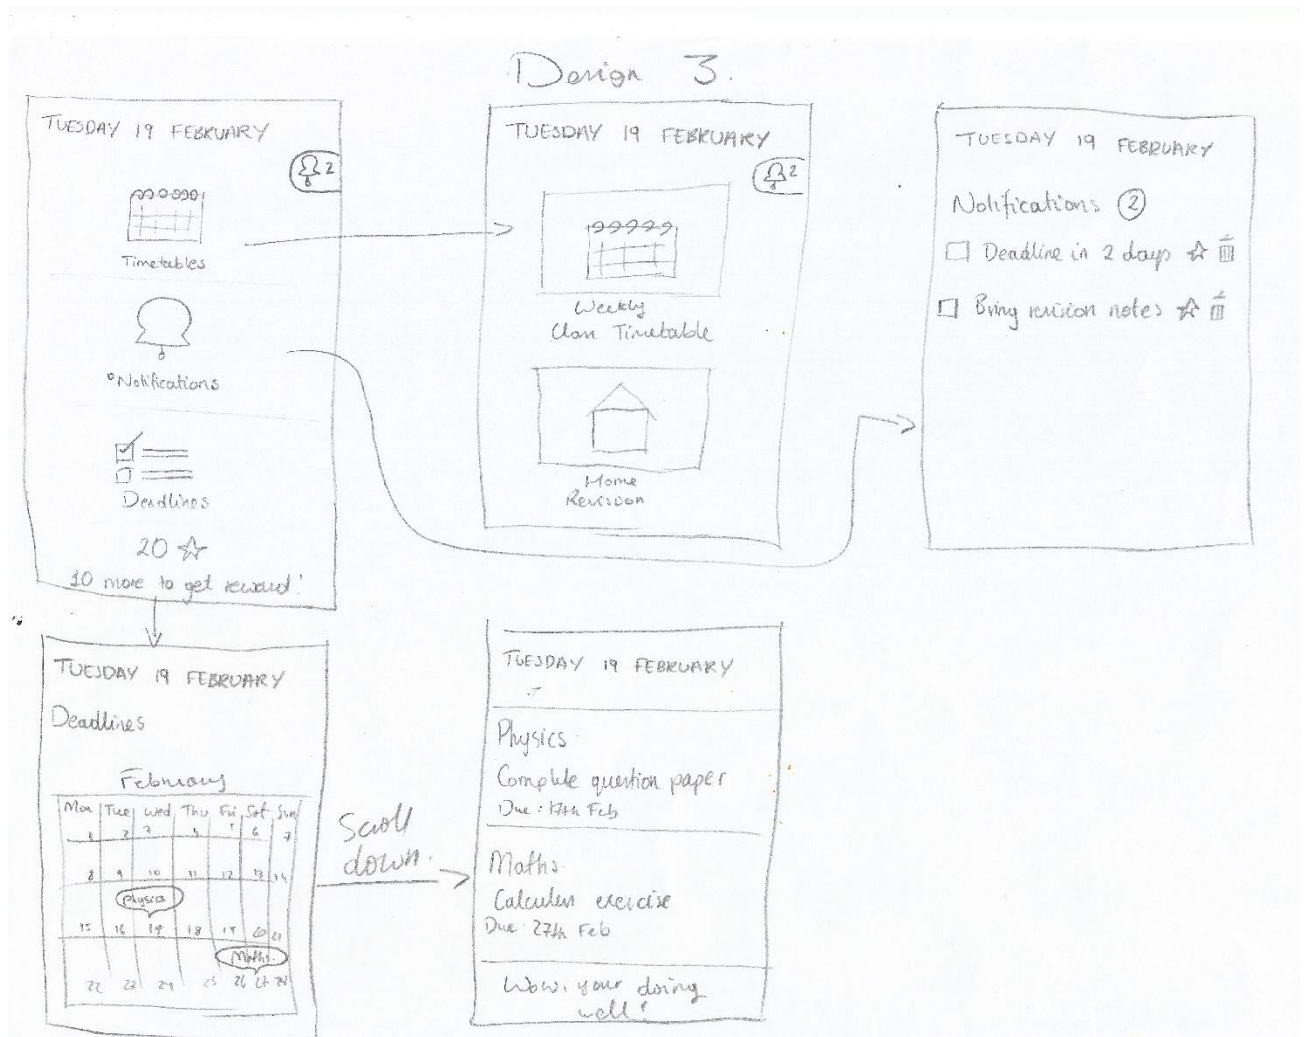 Design 3.
TUESDAY 19 FEBRUARY
2
Timetables
Notifications
Deadlines
20
10 more to get reward!
TUESDAY 19 FEBRUARY
2
Weekly
Class Timetable
Home
Revision
TUESDAY 19 FEBRUARY
Notifications 2
Deadline in 2 days
Bring revision notes
TUESDAY 19 FEBRUARY
Deadlines
February
Mon Tue Wed Thu Fri Sat Sun
1 2 3 5 6 7
8 9 10 11 12 13 14
Physics
15 16 18 19 20 21
Maths
22 23 24 25 26 27 28
Scroll
down.
TUESDAY 19 FEBRUARY
Physics
Complete question paper
Due: 17th Feb
Maths
Calculus exercise
Due: 27th Feb
Wow, your doing
well!